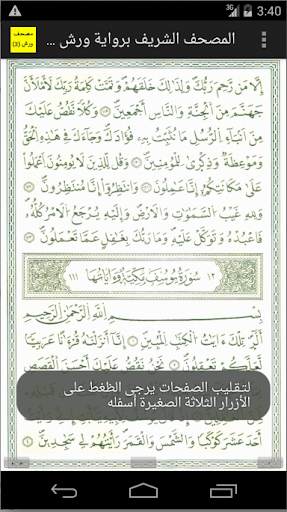 3G 3:40
مصحف
ورش (2)
المصحف الشريف برواية ورش ...
إلا من رحم ربك ولذلك خلقهم وتمت كلمة ربك لأملأن
جهنم من الجنة والناس أجمعين وكلا نقص عليك
من أنباء الرسل ما نثبت به فؤادك وجاءك في هذه الحق
وموعظة وذكرى للمومنين وقل للذين لا يومنون اعملوا
على مكانتكم إنا عملون وانتظروا إنا منتظرون
ولله غيب السموت والارض وإليه يرجع الامر كله
فاعبده وتوكل عليه وما ربك بغفل عما تعملون
١٢ سورة يوسف مكية وءاياتها ١١١
بسم الله الرحمن الرحيم
ألر تلك ءايت الكتب المبين إنا أنزلنه قرءنا عربيا
لعلكم تعقلون نحن نقص عليك أحسن القصص
لتقليب الصفحات يرجى الظغط على
الأزرار الثلاثة الصغيرة أسفله
أحد عشر كوكبا والشمس والقمر رأيتهم لي سجدين